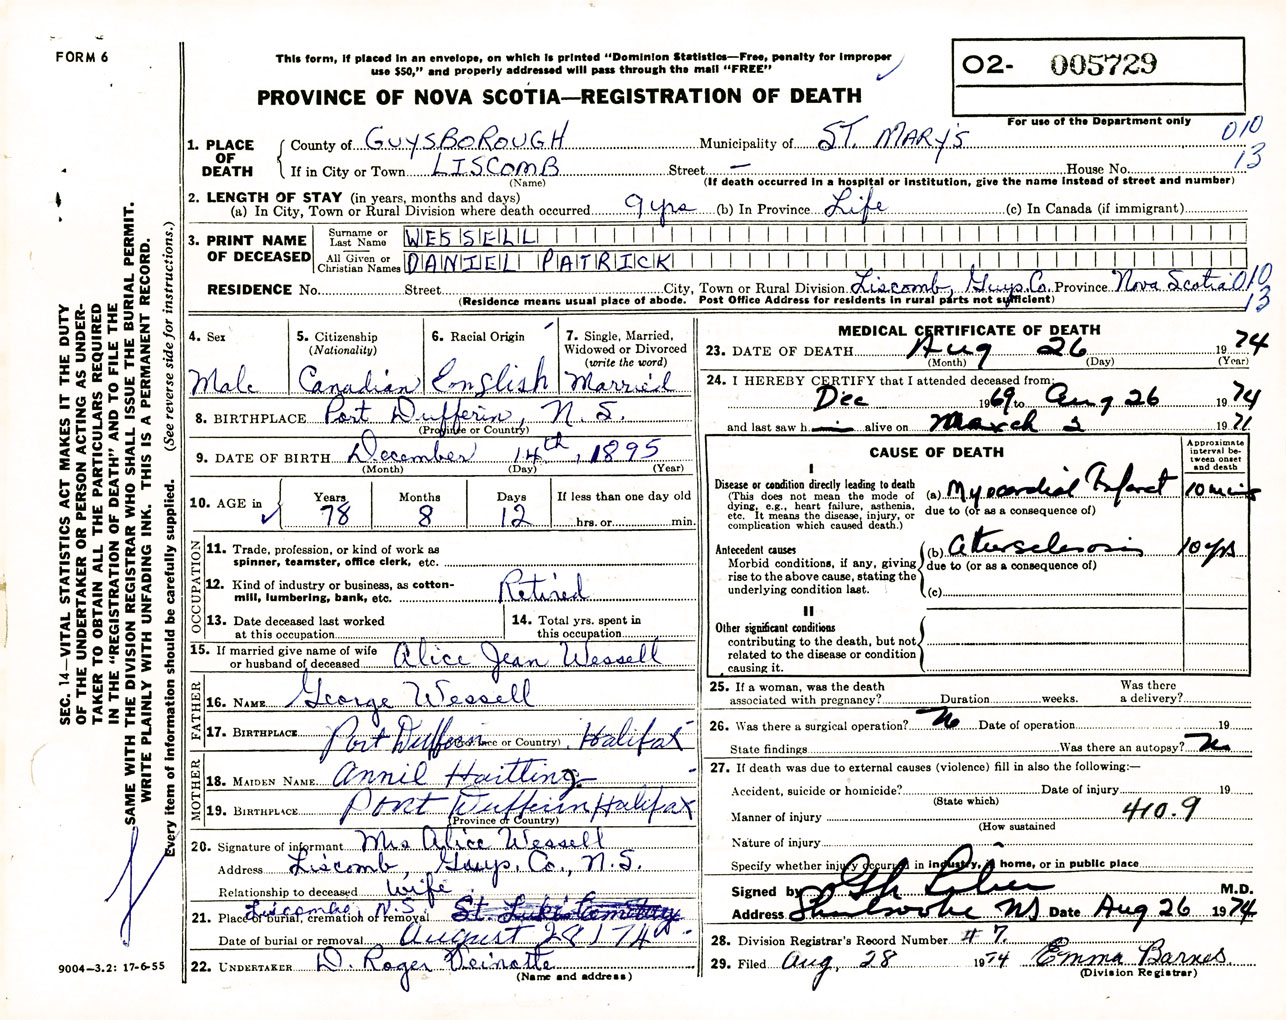 FORM 6
This form, if placed in an envelope, on which is printed "Dominion Statistics—Free, penalty for improper
use $50," and properly addressed will pass through the mail "FREE"
PROVINCE OF NOVA SCOTIA—REGISTRATION OF DEATH
02- 005729
For use of the Department only
010
13
1. PLACE OF DEATH
County of GUYSBOROUGH Municipality of ST. MARY'S
If in City or Town LISCOMB Street — House No.
(Name) (If death occurred in a hospital or institution, give the name instead of street and number)
2. LENGTH OF STAY (in years, months and days)
(a) In City, Town or Rural Division where death occurred 9 yrs (b) In Province Life (c) In Canada (if immigrant)
3. PRINT NAME OF DECEASED
Surname or Last Name WESSELL
All Given or Christian Names DANIEL PATRICK
RESIDENCE No. Street City, Town or Rural Division Liscomb, Guys. Co. Province Nova Scotia 010
13
(Residence means usual place of abode. Post Office Address for residents in rural parts not sufficient)
4. Sex
Male
5. Citizenship
(Nationality)
Canadian
6. Racial Origin
English
7. Single, Married,
Widowed or Divorced
(write the word)
Married
8. BIRTHPLACE Port Dufferin, N.S.
(Province or Country)
9. DATE OF BIRTH December 14th, 1895
(Month) (Day) (Year)
10. AGE in
Years 78
Months 8
Days 12
If less than one day old
hrs. or min.
OCCUPATION
11. Trade, profession, or kind of work as
spinner, teamster, office clerk, etc.
12. Kind of industry or business, as cotton-
mill, lumbering, bank, etc. Retired
13. Date deceased last worked
at this occupation
14. Total yrs. spent in
this occupation
15. If married give name of wife
or husband of deceased Alice Jean Wessell
FATHER
16. NAME George Wessell
17. BIRTHPLACE Port Dufferin, Halifax
(Province or Country)
MOTHER
18. MAIDEN NAME Annie Hartling
19. BIRTHPLACE Port Dufferin Halifax
(Province or Country)
20. Signature of informant Mrs Alice Wessell
Address Liscomb, Guys. Co., N.S.
Relationship to deceased Wife
Liscombe N.S.
21. Place of burial, cremation or removal St. Lukes Cemetery
Date of burial or removal August 28 1974
22. UNDERTAKER D. Roger
(Name and address)
MEDICAL CERTIFICATE OF DEATH
23. DATE OF DEATH Aug 26 1974
(Month) (Day) (Year)
24. I HEREBY CERTIFY that I attended deceased from:
Dec 1969 to Aug 26 1974
and last saw h— alive on March 2 1971
CAUSE OF DEATH
Approximate
interval be-
tween onset
and death
I
Disease or condition directly leading to death
(This does not mean the mode of
dying, e.g., heart failure, asthenia,
etc. It means the disease, injury, or
complication which caused death.)
(a) Myocardial Infarct 10 mins
due to (or as a consequence of)
Antecedent causes
Morbid conditions, if any, giving
rise to the above cause, stating the
underlying condition last.
(b) 10 yrs
due to (or as a consequence of)
(c)
II
Other significant conditions
contributing to the death, but not
related to the disease or condition
causing it.
25. If a woman, was the death
associated with pregnancy? Duration weeks. Was there
a delivery?
26. Was there a surgical operation? No Date of operation 19
State findings Was there an autopsy? No
27. If death was due to external causes (violence) fill in also the following:—
Accident, suicide or homicide? Date of injury 19
(State which)
Manner of injury 410.9
(How sustained
Nature of injury
Specify whether injury occurred in industry, in home, or in public place
Signed by M.D.
Address Sherbrooke NS Date Aug 26 1974
28. Division Registrar's Record Number # 7.
29. Filed Aug, 28 1974 Emma Barnes
(Division Registrar)
SEC. 14—VITAL STATISTICS ACT MAKES IT THE DUTY
OF THE UNDERTAKER OR PERSON ACTING AS UNDER-
TAKER TO OBTAIN ALL THE PARTICULARS REQUIRED
IN THE "REGISTRATION OF DEATH" AND TO FILE THE
SAME WITH THE DIVISION REGISTRAR WHO SHALL ISSUE THE BURIAL PERMIT.
WRITE PLAINLY WITH UNFADING INK. THIS IS A PERMANENT RECORD.
Every item of information should be carefully supplied. (See reverse side for instructions.)
9004—3.2: 17-6-55